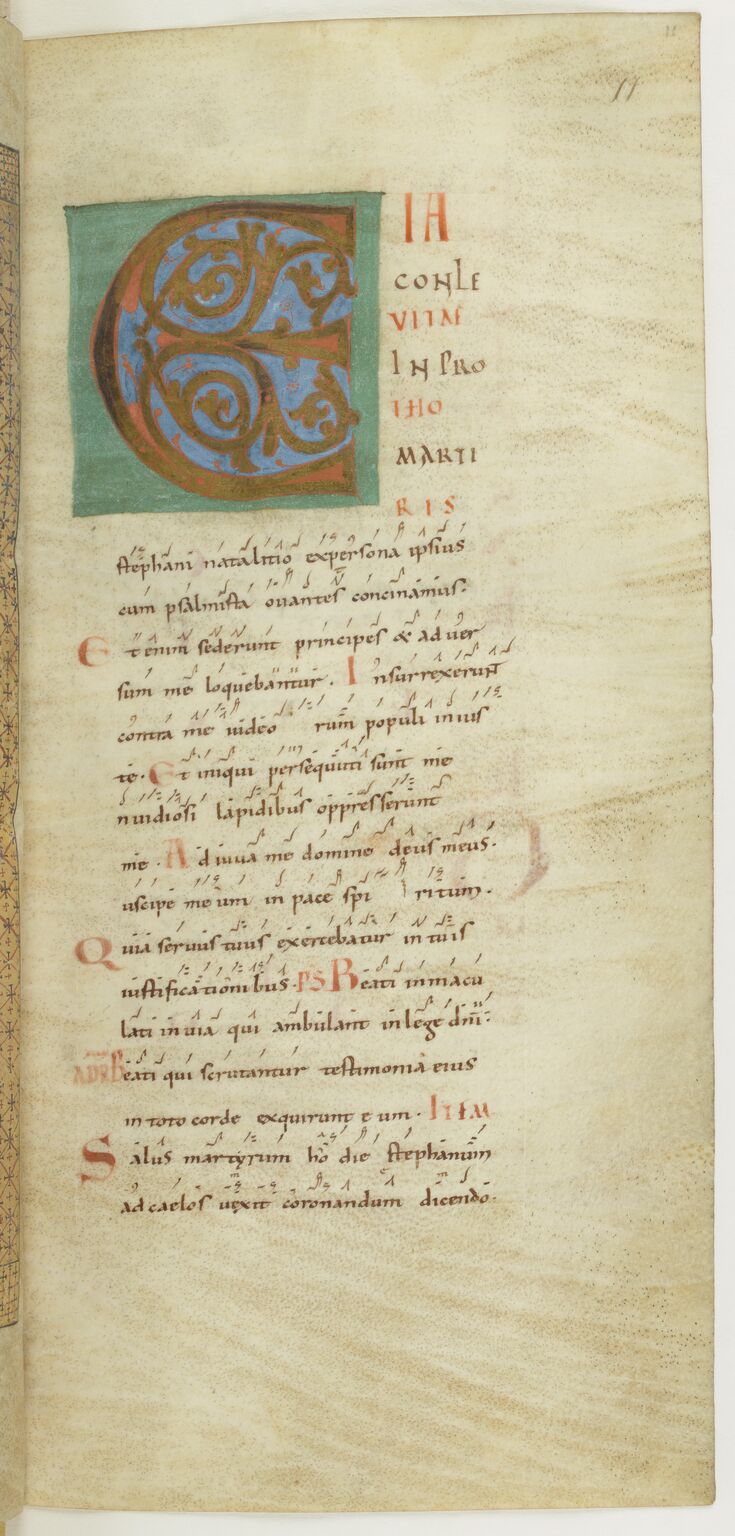 11
11
E IA
CONLE
VITAE
IN PRO
THO
MARTI
RIS
stephani natalitio expersona ipsius
cum psalmista ovantes concinamus.
Et enim sederunt principes & ad ver
sum me loquebantur. Insurrexerunt
contra me video rum populi inius
te. Et iniqui persequuti sunt me
nvidiosi lapidibus oppresserunt
me. Adiuva me domine deus meus.
uscipe meum in pace spi ritum.
Quia servus tuus exercebatur in tuis
iustificationibus. PS Beati inmacu
lati in via qui ambulant in lege dni.
Beati qui scrutantur testimonia eius
in toto corde exquirunt eum. ITEM
Salus martyrum ho die stephanum
ad caelos vexit coronandum dicendo.